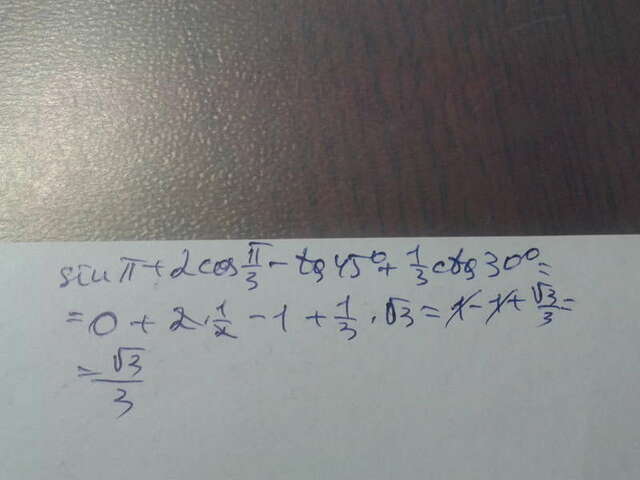 sin π + 2cos π/3 - tg 45° + 1/3 ctg 30° =
= 0 + 2 · 1/2 - 1 + 1/3 · √3 = 1 - 1 + √3/3 =
= √3/3